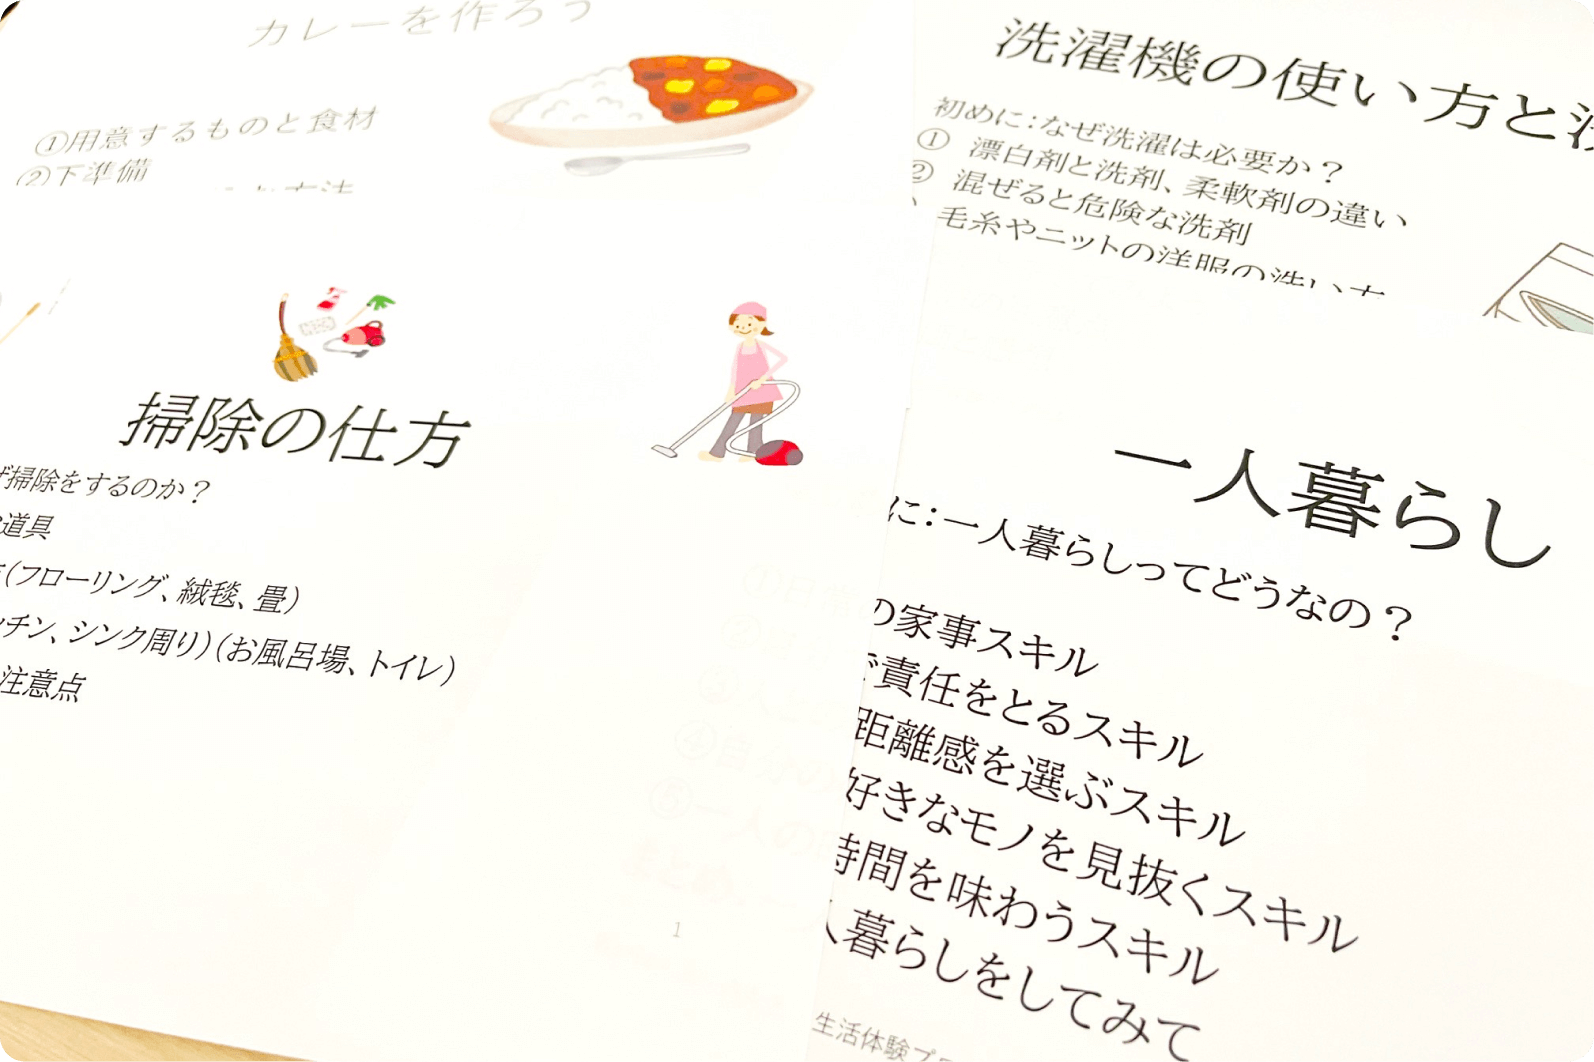 カレーを作ろう
①用意するものと食材
②下準備
掃除の仕方
掃除をするのか？
道具
(フローリング、絨毯、畳)
チン、シンク周り)(お風呂場、トイレ)
注意点
1
洗濯機の使い方と
初めに：なぜ洗濯は必要か？
① 漂白剤と洗剤、柔軟剤の違い
② 混ぜると危険な洗剤
毛糸やニットの洋服の洗い方
一人暮らし
に：一人暮らしってどうなの？
の家事スキル
で責任をとるスキル
距離感を選ぶスキル
好きなモノを見抜くスキル
時間を味わうスキル
人暮らしをしてみて
生活体験プ